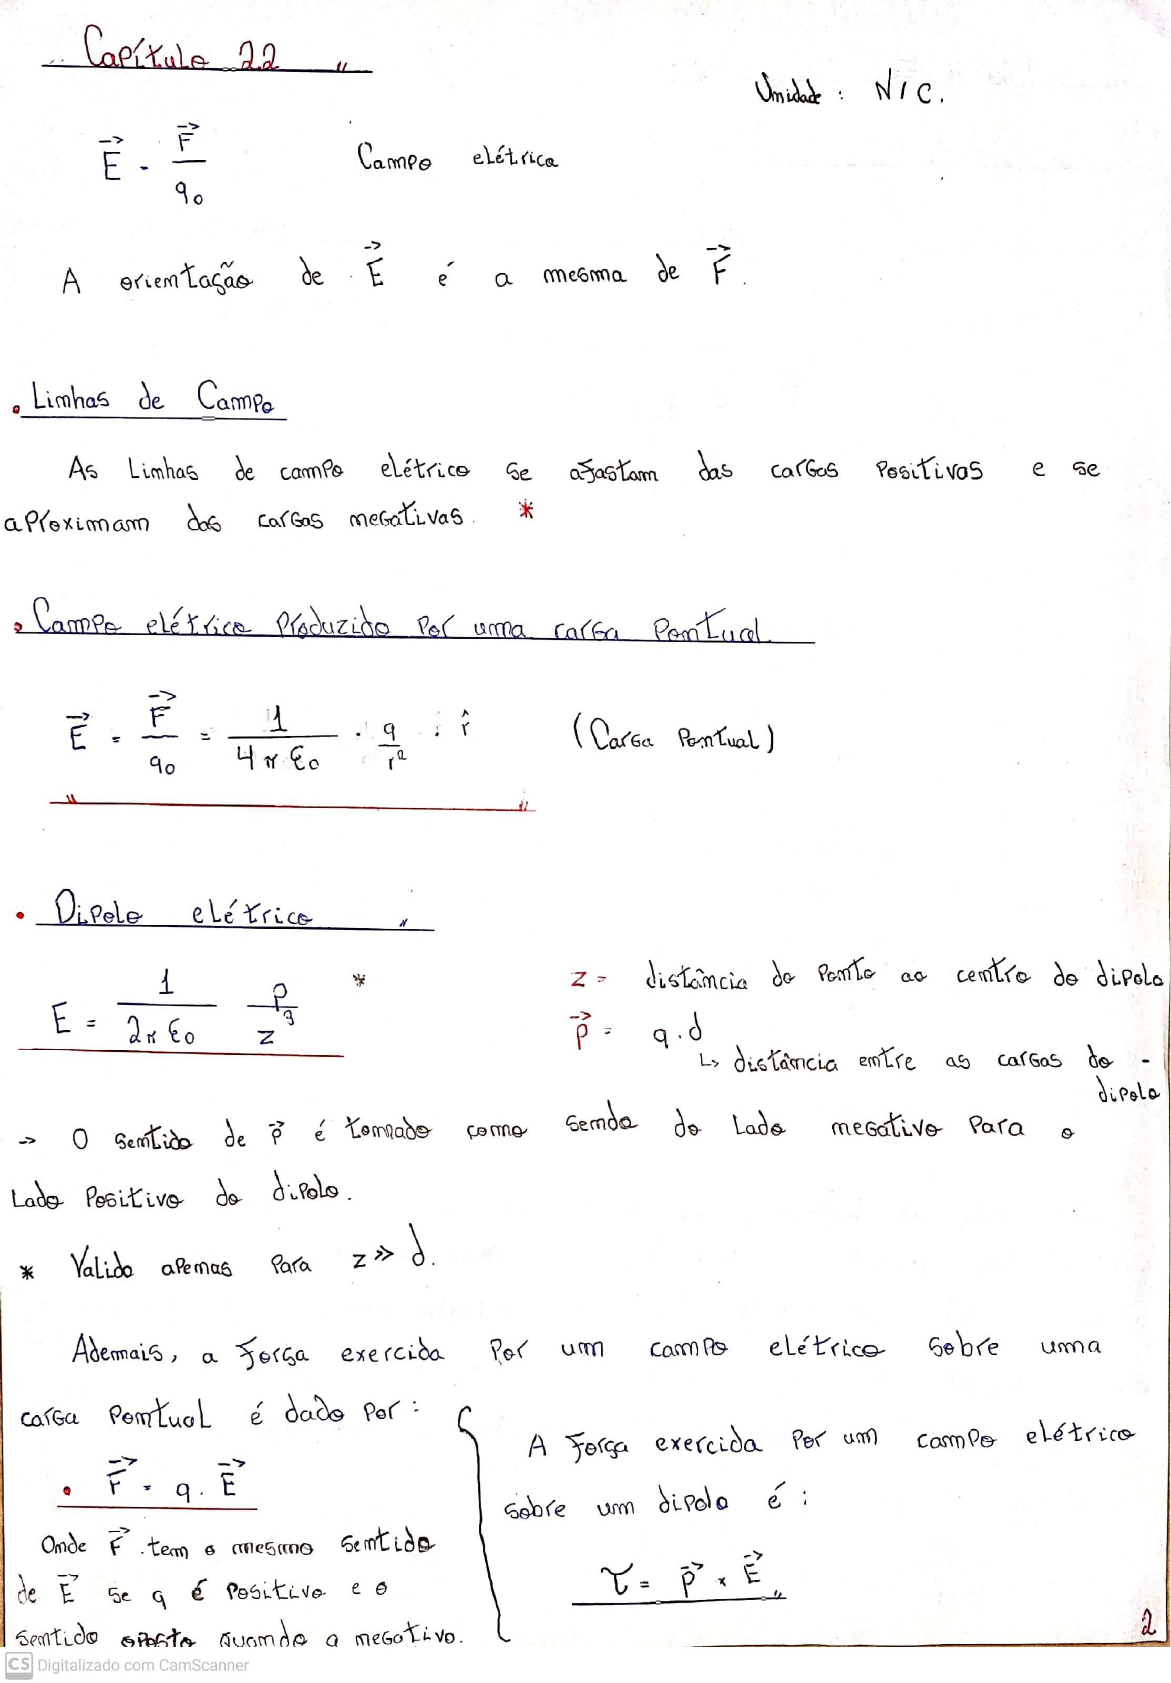 Capítulo 22
Unidade: N/C.
E = F/q0   Campo elétrico
A orientação de E é a mesma de F.
• Linhas de Campo
As Linhas de campo elétrico se afastam das cargas Positivas e se
aproximam das cargas negativas. *
• Campo elétrico Produzido Por uma carga Pontual
E = F/q0 = 1/4πε0 · q/r² · r̂   (Carga Pontual)
• Dipolo elétrico
E = 1/2πε0 p/z³ *
z = distância do Ponto ao centro do dipolo
p = q.d
↳ distância entre as cargas do -
dipolo
→ O sentido de p é tomado como sendo do Lado negativo Para o
Lado Positivo do dipolo.
* Valido apenas Para z >> d.
Ademais, a Força exercida Por um campo elétrico Sobre uma
carga Pontual é dado Por:
• F = q. E
Onde F tem o mesmo sentido
de E se q é Positivo e o
sentido oposto quando a negativo.
A Força exercida Por um campo elétrico
sobre um dipolo é:
τ = p × E
2
CS Digitalizado com CamScanner